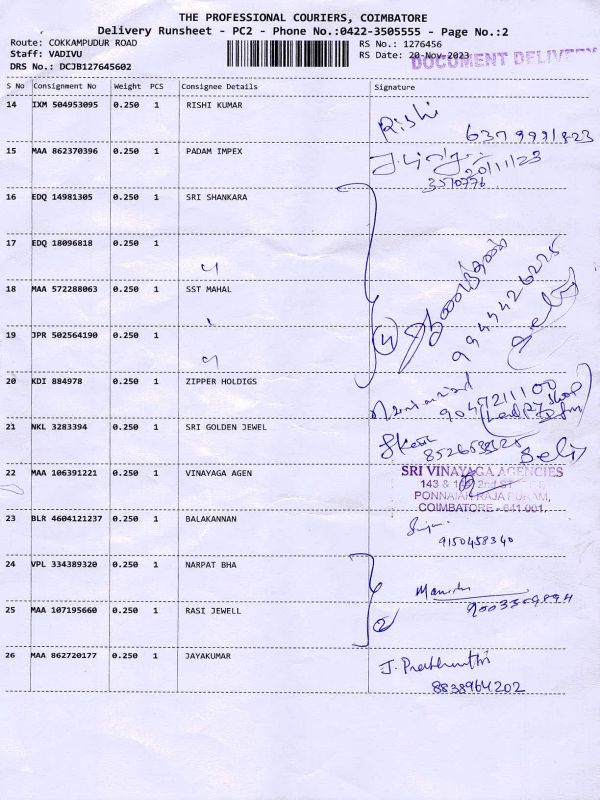 THE PROFESSIONAL COURIERS, COIMBATORE
Delivery Runsheet - PC2 - Phone No.:0422-3505555 - Page No.:2
Route: COKKAMPUDUR ROAD RS No.: 1276456
Staff: VADIVU RS Date: 20-Nov-2023 DOCUMENT DELIVERY
DRS No.: DCJB127645602
S No Consignment No Weight PCS Consignee Details Signature
14 IXM 504953095 0.250 1 RISHI KUMAR Rishi
15 MAA 862370396 0.250 1 PADAM IMPEX 20/11/23
16 EDQ 14981305 0.250 1 SRI SHANKARA
17 EDQ 18096818 0.250 1
18 MAA 572288063 0.250 1 SST MAHAL
19 JPR 502564190 0.250 1
4
20 KDI 884978 0.250 1 ZIPPER HOLDIGS
9047211100
21 NKL 3283394 0.250 1 SRI GOLDEN JEWEL
22 MAA 106391221 0.250 1 VINAYAGA AGEN SRI VINAYAGA AGENCIES
PONNAIAH RAJA PURAM,
COIMBATORE - 641 001.
23 BLR 4604121237 0.250 1 BALAKANNAN
9150458340
24 VPL 334389320 0.250 1 NARPAT BHA
25 MAA 107195660 0.250 1 RASI JEWELL
2
26 MAA 862720177 0.250 1 JAYAKUMAR
8838964202